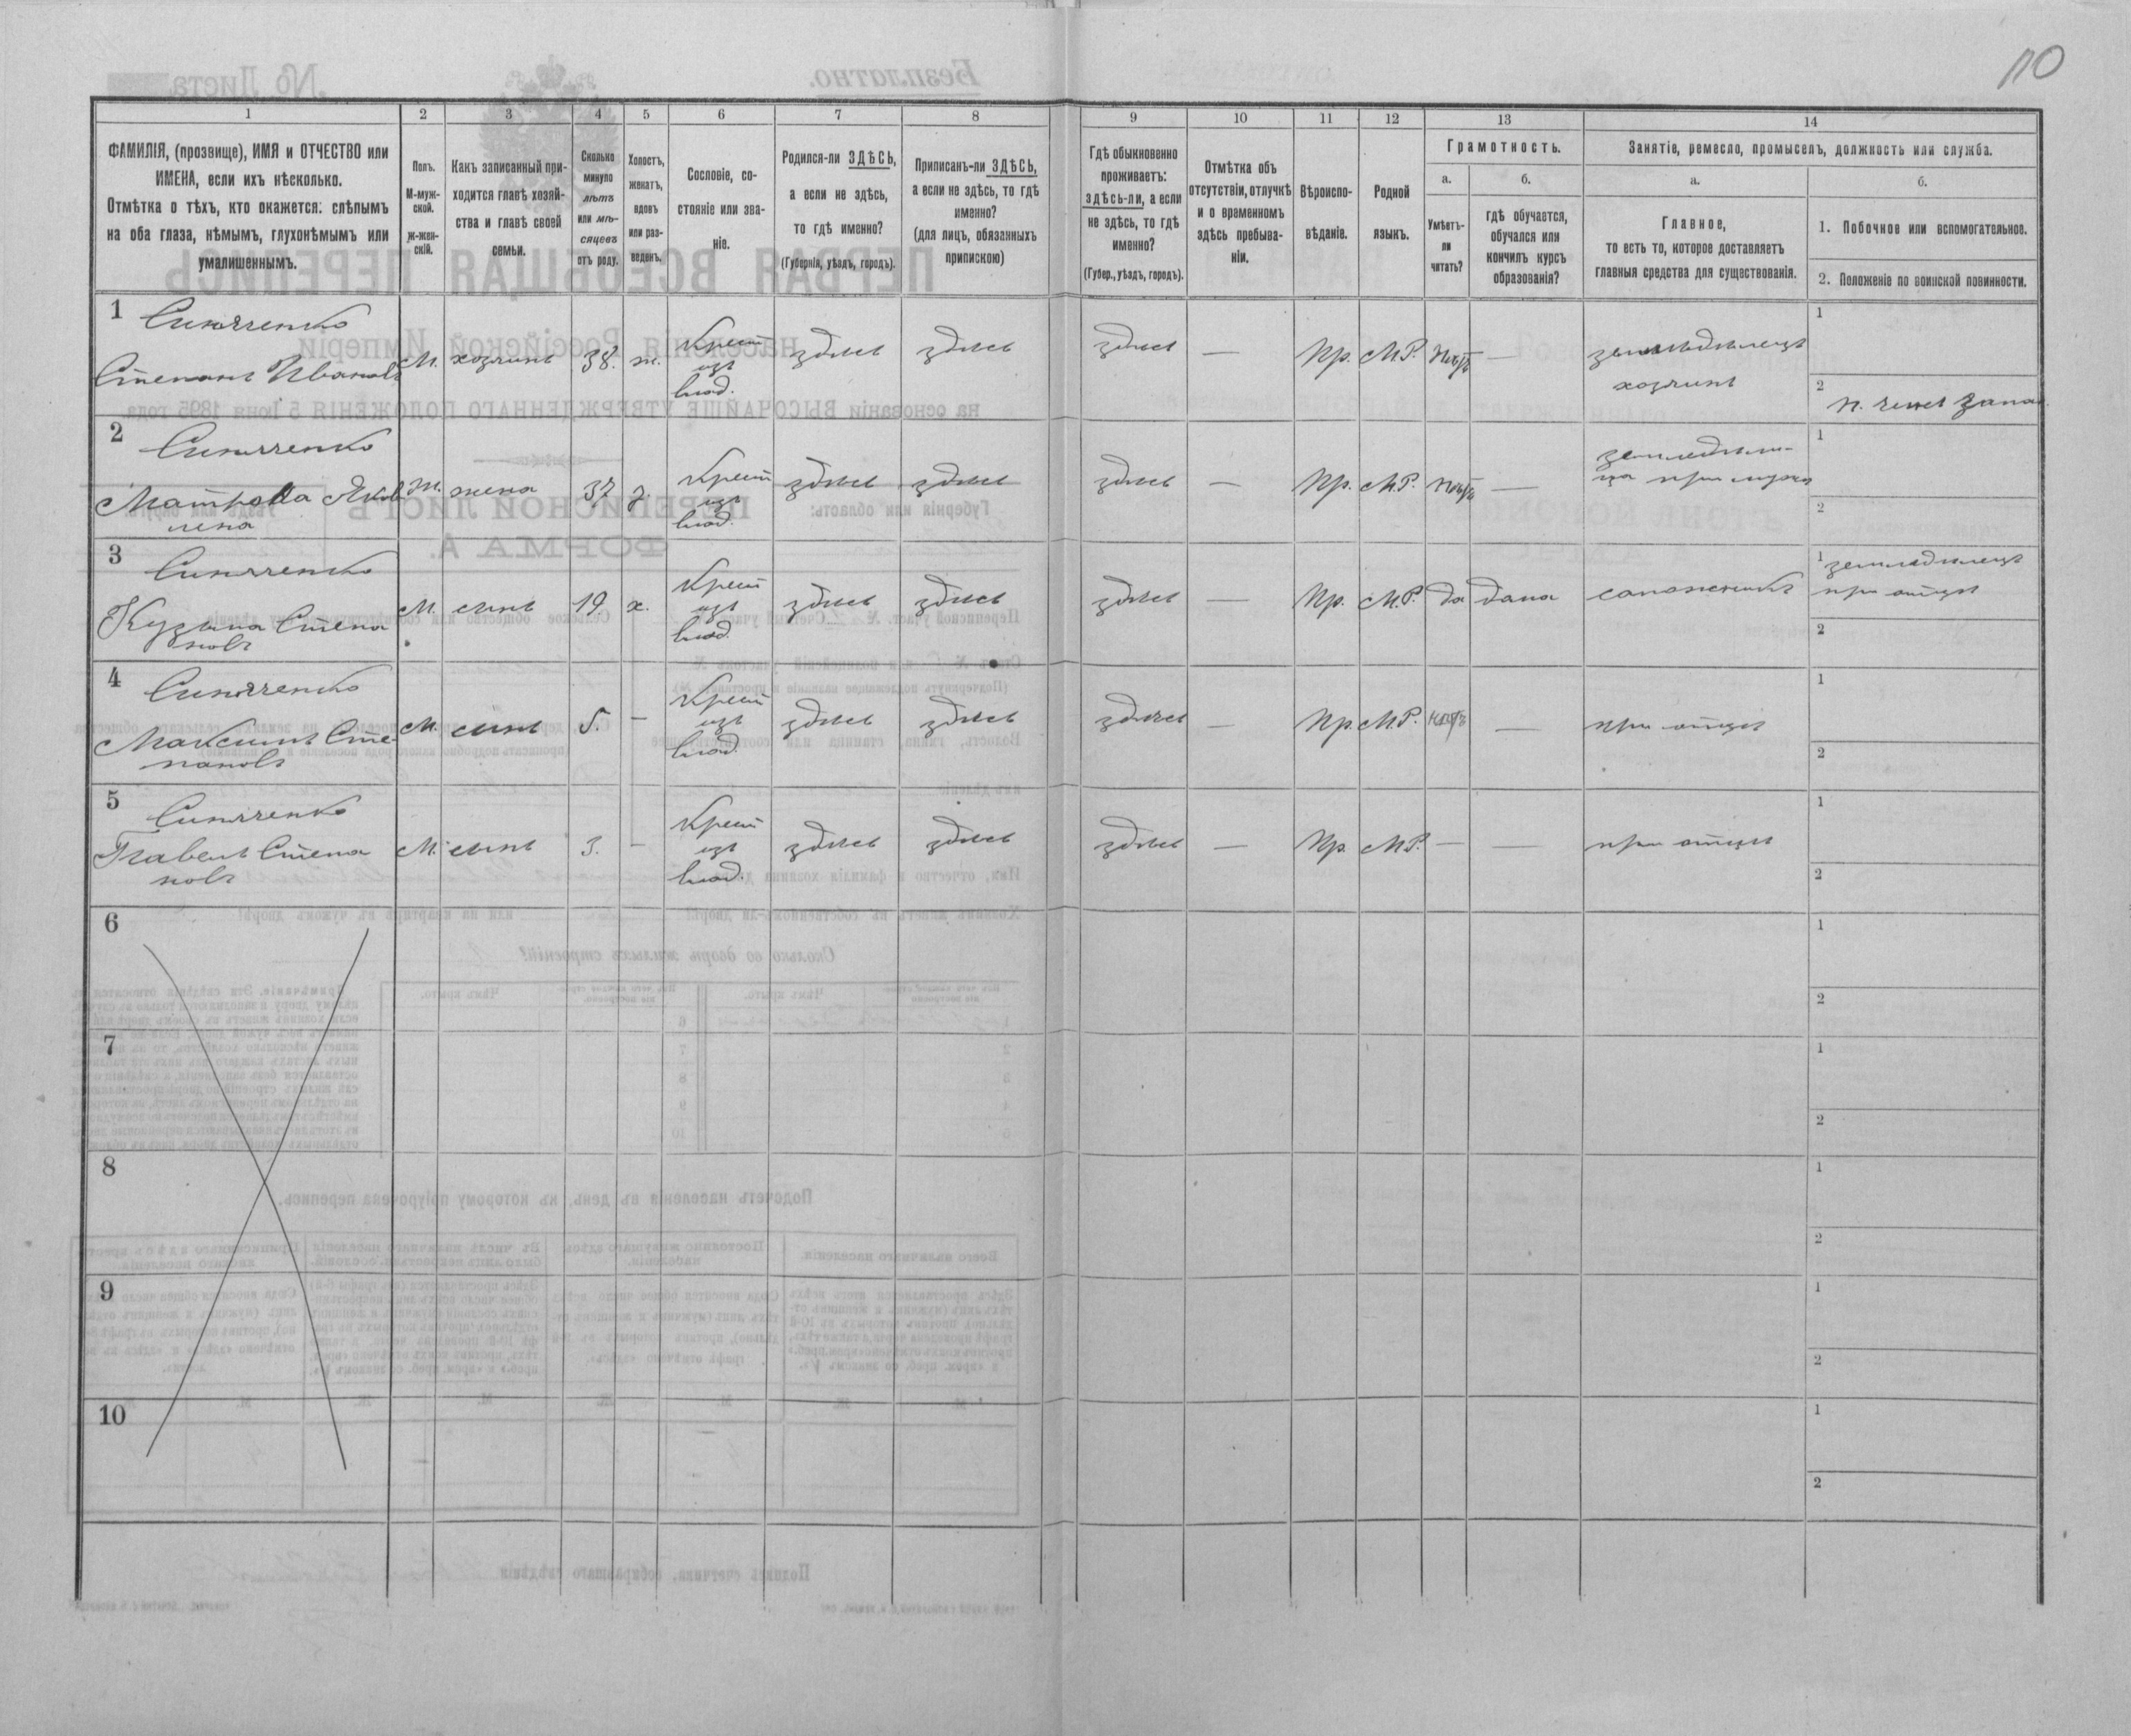 110
1
2
3
4
5
6
7
8
9
10
11
12
13
14
ФАМИЛІЯ, (прозвище), ИМЯ и ОТЧЕСТВО или
ИМЕНА, если ихъ нѣсколько.
Отмѣтка о тѣхъ, кто окажется: слѣпымъ
на оба глаза, нѣмымъ, глухонѣмымъ или
умалишеннымъ.
Полъ.
М-муж-
ской.
Ж-жен-
скій.
Какъ записанный при-
ходится главѣ хозяй-
ства и главѣ своей
семьи.
Сколько
минуло
лѣтъ
или мѣ-
сяцевъ
отъ роду.
Холостъ,
женатъ,
вдовъ
или раз-
веденъ.
Сословіе, со-
стояніе или зва-
ніе.
Родился-ли ЗДѢСЬ,
а если не здѣсь,
то гдѣ именно?
(Губернія, уѣздъ, городъ).
Приписанъ-ли ЗДѢСЬ,
а если не здѣсь, то гдѣ
именно?
(для лицъ, обязанныхъ
припискою)
Гдѣ обыкновенно
проживаетъ:
здѣсь-ли, а если
не здѣсь, то гдѣ
именно?
(Губер., уѣздъ, городъ).
Отмѣтка объ
отсутствіи, отлучкѣ
и о временномъ
здѣсь пребыва-
ніи.
Вѣроиспо-
вѣданіе.
Родной
языкъ.
Грамотность.
а.
Умѣетъ-
ли
читать?
б.
гдѣ обучается,
обучался или
кончилъ курсъ
образованія?
Занятіе, ремесло, промыселъ, должность или служба.
а.
Главное,
то есть то, которое доставляетъ
главныя средства для существованія.
б.
1. Побочное или вспомогательное.
2. Положеніе по воинской повинности.
1
Синяченко
Степанъ Ивановъ
М.
хозяинъ
38.
ж.
Крест
изъ
влад.
здѣсь
здѣсь
здѣсь
—
Пр.
М.Р.
нѣтъ
—
земледѣлецъ
хозяинъ
1
2
2
Синяченко
Матрона Яков
лена
Ж.
жена
37
з.
Крест
изъ
влад.
здѣсь
здѣсь
здѣсь
—
Пр.
М.Р.
нѣтъ
—
земледѣли-
ца при мужѣ
1
2
3
Синяченко
Кузьма Степа
новъ
М.
сынъ
19.
х.
Крест
изъ
влад.
здѣсь
здѣсь
здѣсь
—
Пр.
М.Р.
да
дома
сапожникъ
1 земледѣлецъ
при отцѣ
2
4
Синяченко
Максимъ Сте
пановъ
М.
сынъ
5.
—
Крест
изъ
влад.
здѣсь
здѣсь
здѣсь
—
Пр.
М.Р.
нѣтъ
—
при отцѣ
1
2
5
Синяченко
Павелъ Степа
новъ
М.
сынъ
3.
—
Крест
изъ
влад.
здѣсь
здѣсь
здѣсь
—
Пр.
М.Р.
—
—
при отцѣ
1
2
6
1
2
7
1
2
8
1
2
9
1
2
10
1
2